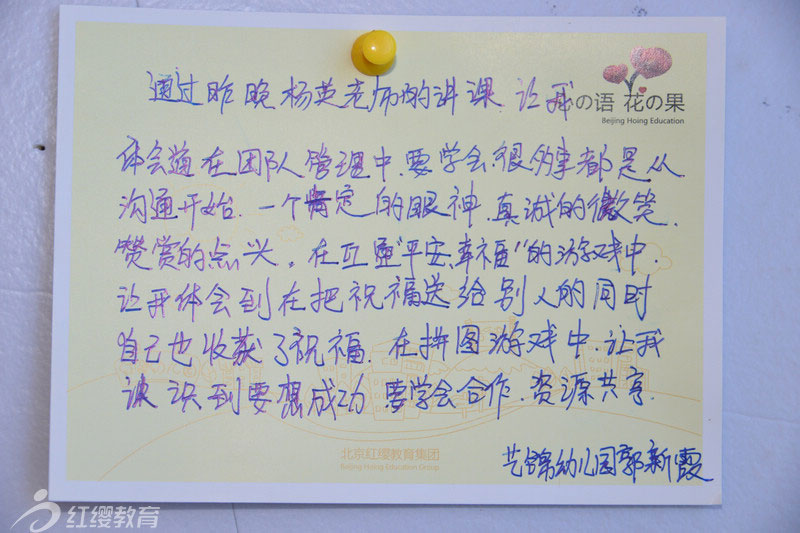 通过昨晚杨英老师的讲课 让我
の语 花の果
Beijing Hoing Education
体会道在团队管理中.要学会很多事都是从
沟通开始.一个肯定的眼神.真诚的微笑.
赞赏的点兴。在互道“平安幸福”的游戏中.
让我体会到在把祝福送给别人的同时
自己也收获了祝福.在拼图游戏中.让我
识到要想成功 要学会合作.资源共享.
北京红缨教育集团
Beijing Hoing Education Group
艺锦幼儿园郭新霞
红缨教育